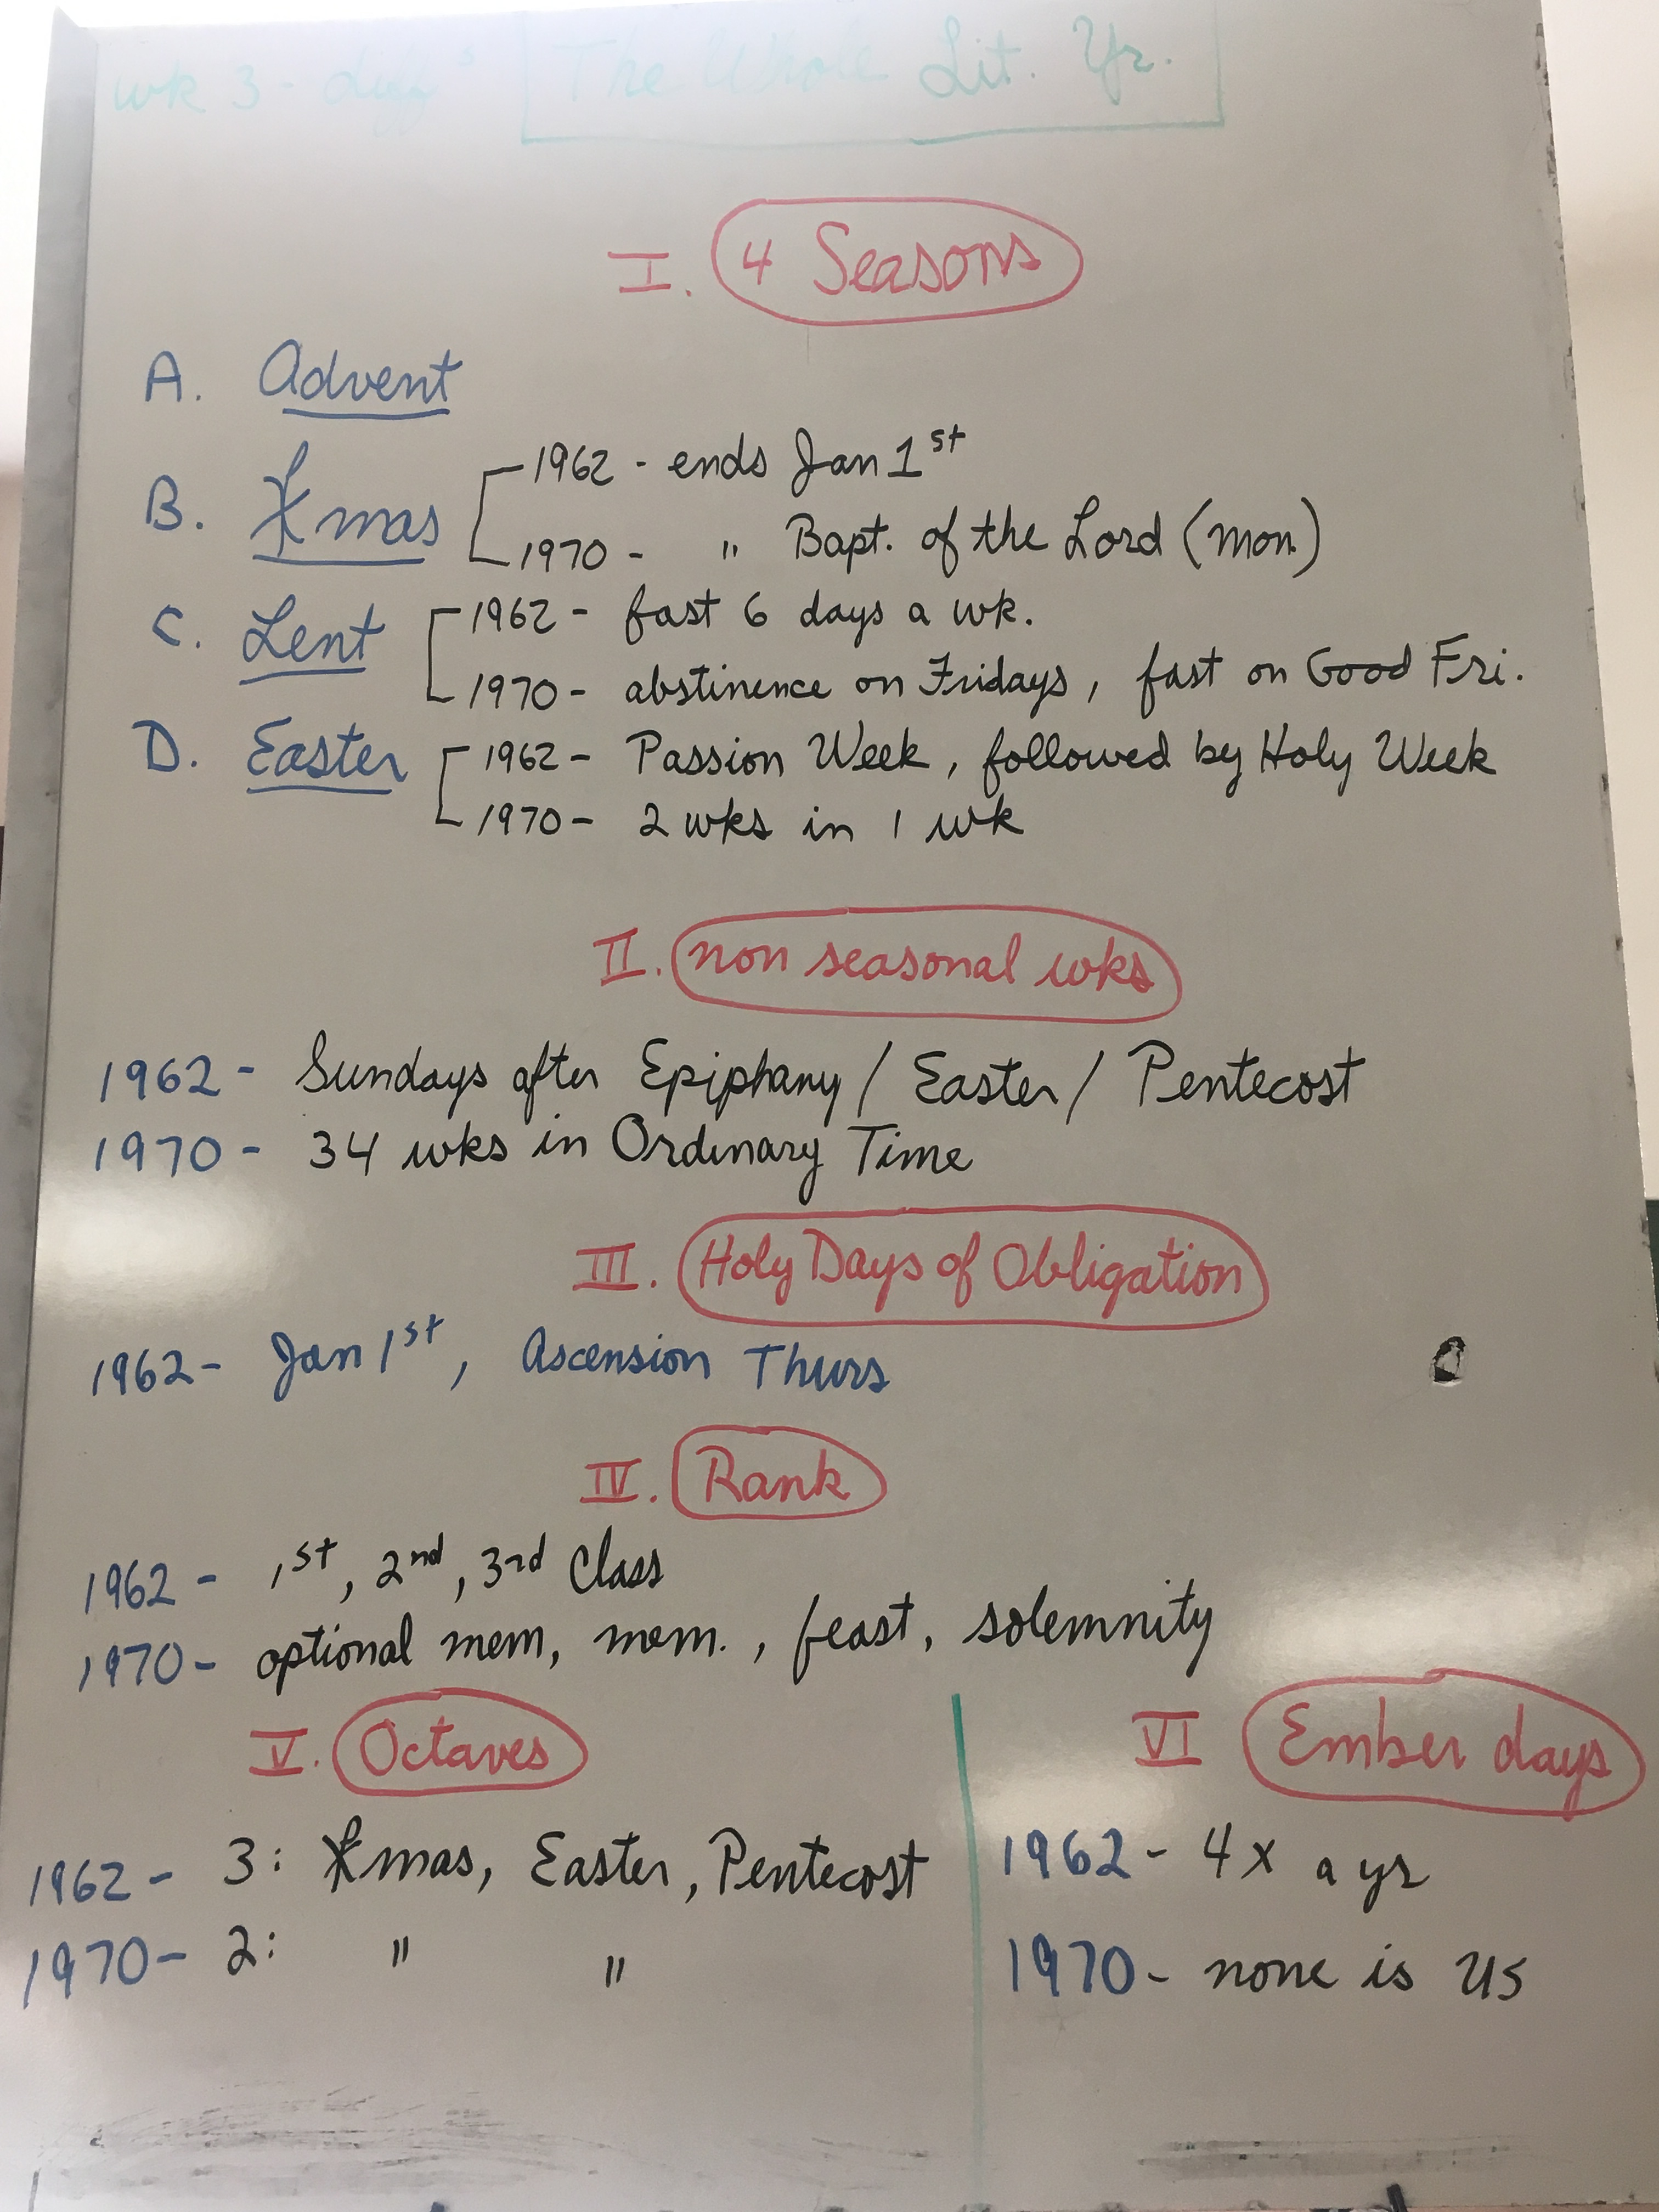 wk 3 - diff's The Whole Lit. Yr.
I. 4 Seasons
A. Advent
B. Xmas
1962 - ends Jan 1st
1970 - " Bapt. of the Lord (Mon)
C. Lent
1962 - fast 6 days a wk.
1970 - abstinence on Fridays, fast on Good Fri.
D. Easter
1962 - Passion Week, followed by Holy Week
1970 - 2 wks in 1 wk
II. non seasonal wks
1962 - Sundays after Epiphany / Easter / Pentecost
1970 - 34 wks in Ordinary Time
III. Holy Days of Obligation
1962 - Jan 1st, Ascension Thurs
IV. Rank
1962 - 1st, 2nd, 3rd Class
1970 - optional mem, mem., feast, solemnity
V. Octaves
1962 - 3: Xmas, Easter, Pentecost
1970 - 2: " "
VI Ember days
1962 - 4x a yr
1970 - none is US